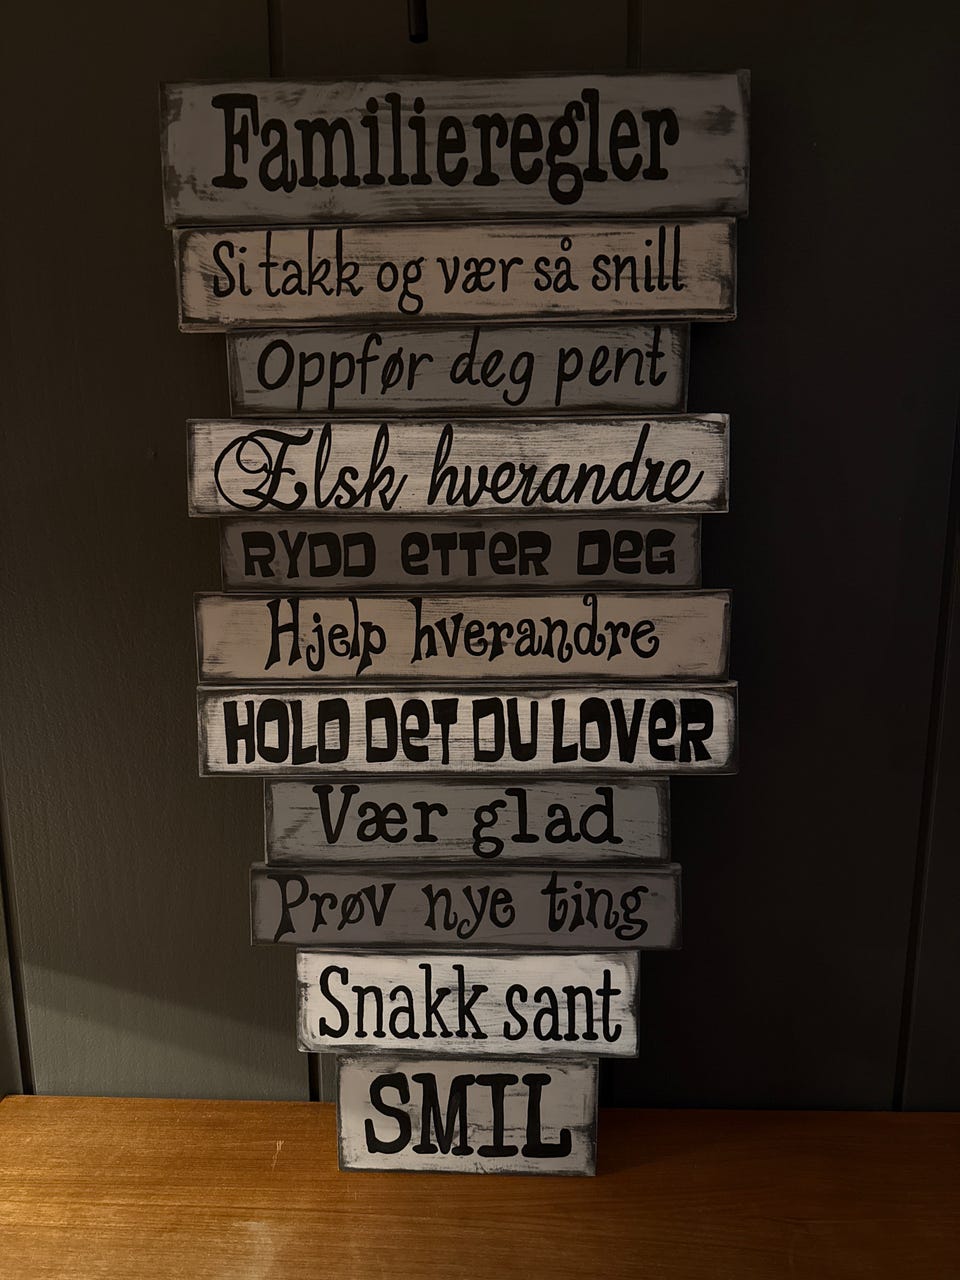 Familieregler
Si takk og vær så snill
Oppfør deg pent
Elsk hverandre
RYDD eTTeR DeG
Hjelp hverandre
HOLD DeT DU LOVeR
Vær glad
Prøv nye ting
Snakk sant
SMIL